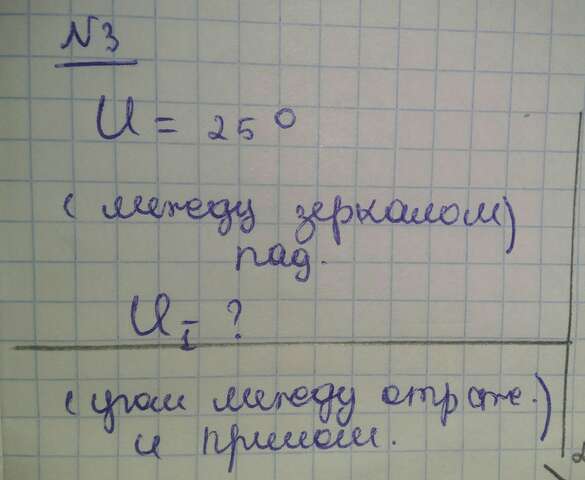 N3
U = 25°
(между зеркалом)
пад.
U₁ = ?
(угол между отраже.)
и прямой.